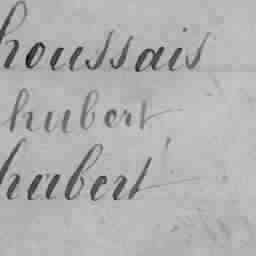 houssais
hubert
hubert